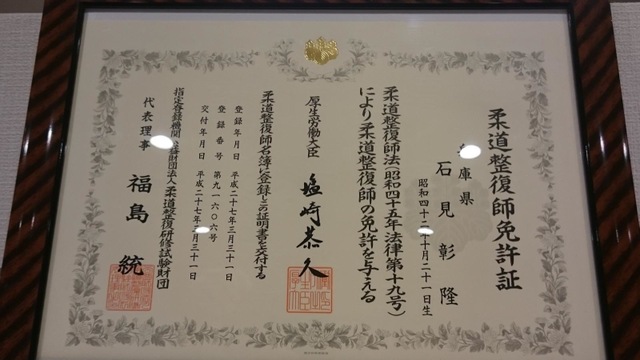 柔道整復師免許証
兵庫県
石見彰隆
昭和四十二年十月二十一日生
柔道整復師法（昭和四十五年法律第十九号）
により柔道整復師の免許を与える
厚生労働大臣 塩崎恭久
柔道整復師名簿に登録しこの証明書を交付する
登録年月日 平成二十七年三月三十一日
登録番号 第九一六〇六号
交付年月日 平成二十七年三月三十一日
指定登録機関 公益財団法人柔道整復研修試験財団
代表理事 福島統